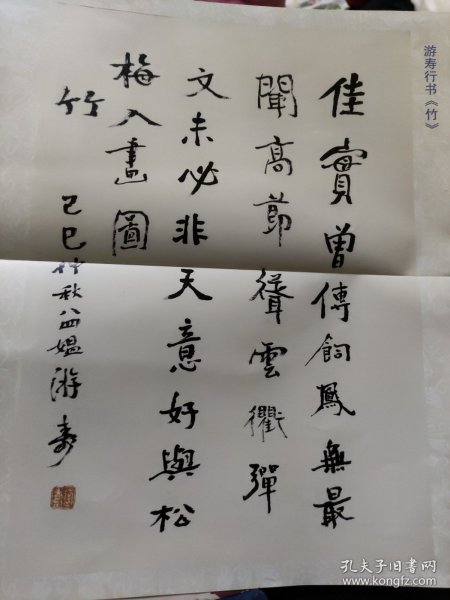 佳實曾傳飼鳳無最
聞高節聳雲衢彈
文未必非天意好與松
梅入畫圖
竹
己巳仲秋八四媪游寿
游寿行书《竹》
孔夫子旧书网
www.kongfz.com